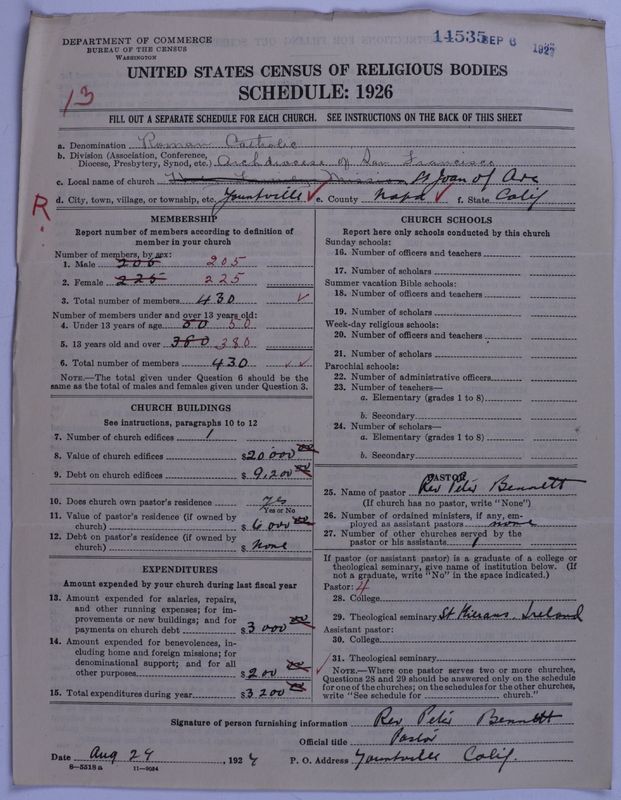 14535 SEP 6 1927
DEPARTMENT OF COMMERCE
BUREAU OF THE CENSUS
WASHINGTON
UNITED STATES CENSUS OF RELIGIOUS BODIES
SCHEDULE: 1926
13
FILL OUT A SEPARATE SCHEDULE FOR EACH CHURCH. SEE INSTRUCTIONS ON THE BACK OF THIS SHEET
a. Denomination Roman Catholic
b. Division (Association, Conference,
Diocese, Presbytery, Synod, etc.) Archdiocese of San Francisco
c. Local name of church Mission St Joan of Arc
d. City, town, village, or township, etc. Yountville e. County Napa f. State Calif
R.
MEMBERSHIP
Report number of members according to definition of
member in your church
Number of members, by sex:
1. Male 205 205
2. Female 225 225
3. Total number of members 430
Number of members under and over 13 years old:
4. Under 13 years of age 50 50
5. 13 years old and over 380 380
6. Total number of members 430
NOTE.—The total given under Question 6 should be the
same as the total of males and females given under Question 3.
CHURCH BUILDINGS
See instructions, paragraphs 10 to 12
7. Number of church edifices 1
8. Value of church edifices $20000 00
9. Debt on church edifices $9,200 00
10. Does church own pastor's residence yes
Yes or No
11. Value of pastor's residence (if owned by
church) $6000 00
12. Debt on pastor's residence (if owned by
church) $None
EXPENDITURES
Amount expended by your church during last fiscal year
13. Amount expended for salaries, repairs,
and other running expenses; for im-
provements or new buildings; and for
payments on church debt $3000 00
14. Amount expended for benevolences, in-
cluding home and foreign missions; for
denominational support; and for all
other purposes $200 00
15. Total expenditures during year $3200 00
CHURCH SCHOOLS
Report here only schools conducted by this church
Sunday schools:
16. Number of officers and teachers
17. Number of scholars
Summer vacation Bible schools:
18. Number of officers and teachers
19. Number of scholars
Week-day religious schools:
20. Number of officers and teachers
21. Number of scholars
Parochial schools:
22. Number of administrative officers
23. Number of teachers—
a. Elementary (grades 1 to 8)
b. Secondary
24. Number of scholars—
a. Elementary (grades 1 to 8)
b. Secondary
PASTOR
25. Name of pastor Rev Peter Bennett
(If church has no pastor, write "None")
26. Number of ordained ministers, if any, em-
ployed as assistant pastors none
27. Number of other churches served by the
pastor or his assistants 1
If pastor (or assistant pastor) is a graduate of a college or
theological seminary, give name of institution below. (If
not a graduate, write "No" in the space indicated.)
Pastor: 4
28. College
29. Theological seminary St Kierans. Ireland
Assistant pastor:
30. College
31. Theological seminary
NOTE.—Where one pastor serves two or more churches,
Questions 28 and 29 should be answered only on the schedule
for one of the churches; on the schedules for the other churches,
write "See schedule for church."
Signature of person furnishing information Rev Peter Bennett
Official title Pastor
Date Aug 24, 1927 P. O. Address Yountville Calif.
8—5518 a 11—9034